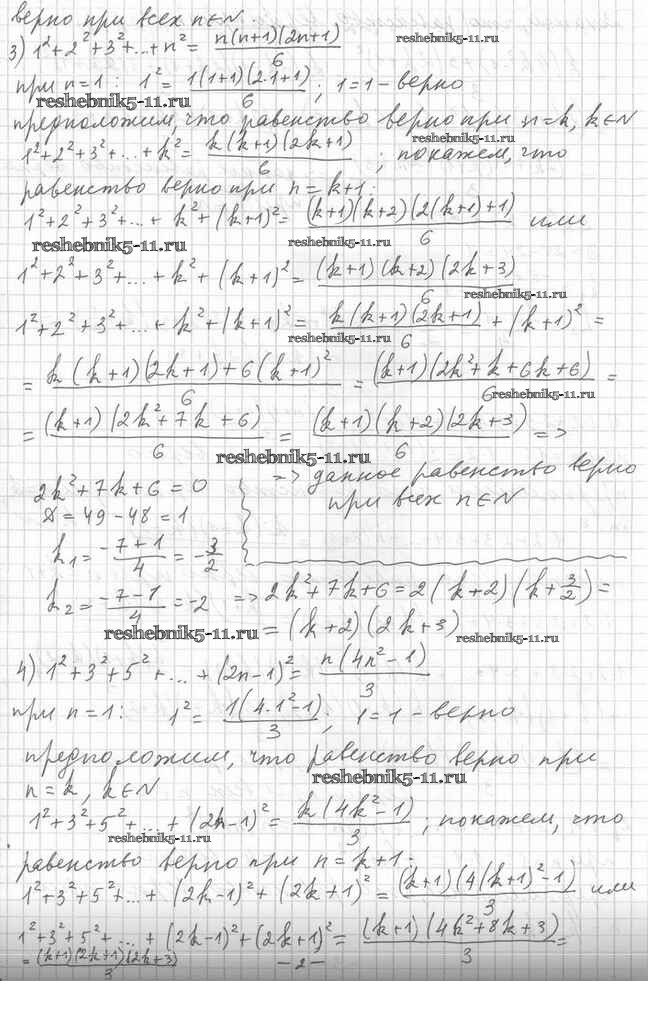 верно при всех n∈N
3) 1²+2²+3²+...+n² = n(n+1)(2n+1)/6
reshebnik5-11.ru
при n=1: 1² = 1(1+1)(2·1+1)/6; 1=1 – верно
reshebnik5-11.ru
предположим, что равенство верно при n=k, k∈N
reshebnik5-11.ru
1²+2²+3²+...+k² = k(k+1)(2k+1)/6; покажем, что
равенство верно при n=k+1:
1²+2²+3²+...+k²+(k+1)² = (k+1)(k+2)(2(k+1)+1)/6 или
reshebnik5-11.ru reshebnik5-11.ru
1²+2²+3²+...+k²+(k+1)² = (k+1)(k+2)(2k+3)/6
reshebnik5-11.ru
1²+2²+3²+...+k²+(k+1)² = k(k+1)(2k+1)/6 + (k+1)² =
reshebnik5-11.ru
= k(k+1)(2k+1)+6(k+1)²/6 = (k+1)(2k²+k+6k+6)/6 =
reshebnik5-11.ru
= (k+1)(2k²+7k+6)/6 = (k+1)(k+2)(2k+3)/6 =>
reshebnik5-11.ru
=> данное равенство верно
при всех n∈N
2k²+7k+6=0
D=49-48=1
k₁ = -7+1/4 = -3/2
k₂ = -7-1/4 = -2 => 2k²+7k+6 = 2(k+2)(k+3/2) =
= (k+2)(2k+3)
reshebnik5-11.ru reshebnik5-11.ru
4) 1²+3²+5²+...+(2n-1)² = n(4n²-1)/3
при n=1: 1² = 1(4·1²-1)/3; 1=1 – верно
предположим, что равенство верно при
reshebnik5-11.ru
n=k, k∈N
1²+3²+5²+...+(2k-1)² = k(4k²-1)/3; покажем, что
reshebnik5-11.ru
равенство верно при n=k+1:
1²+3²+5²+...+(2k-1)²+(2k+1)² = (k+1)(4(k+1)²-1)/3 или
1²+3²+5²+...+(2k-1)²+(2k+1)² = (k+1)(4k²+8k+3)/3 =
= (k+1)(2k+1)(2k+3)/3
-2-